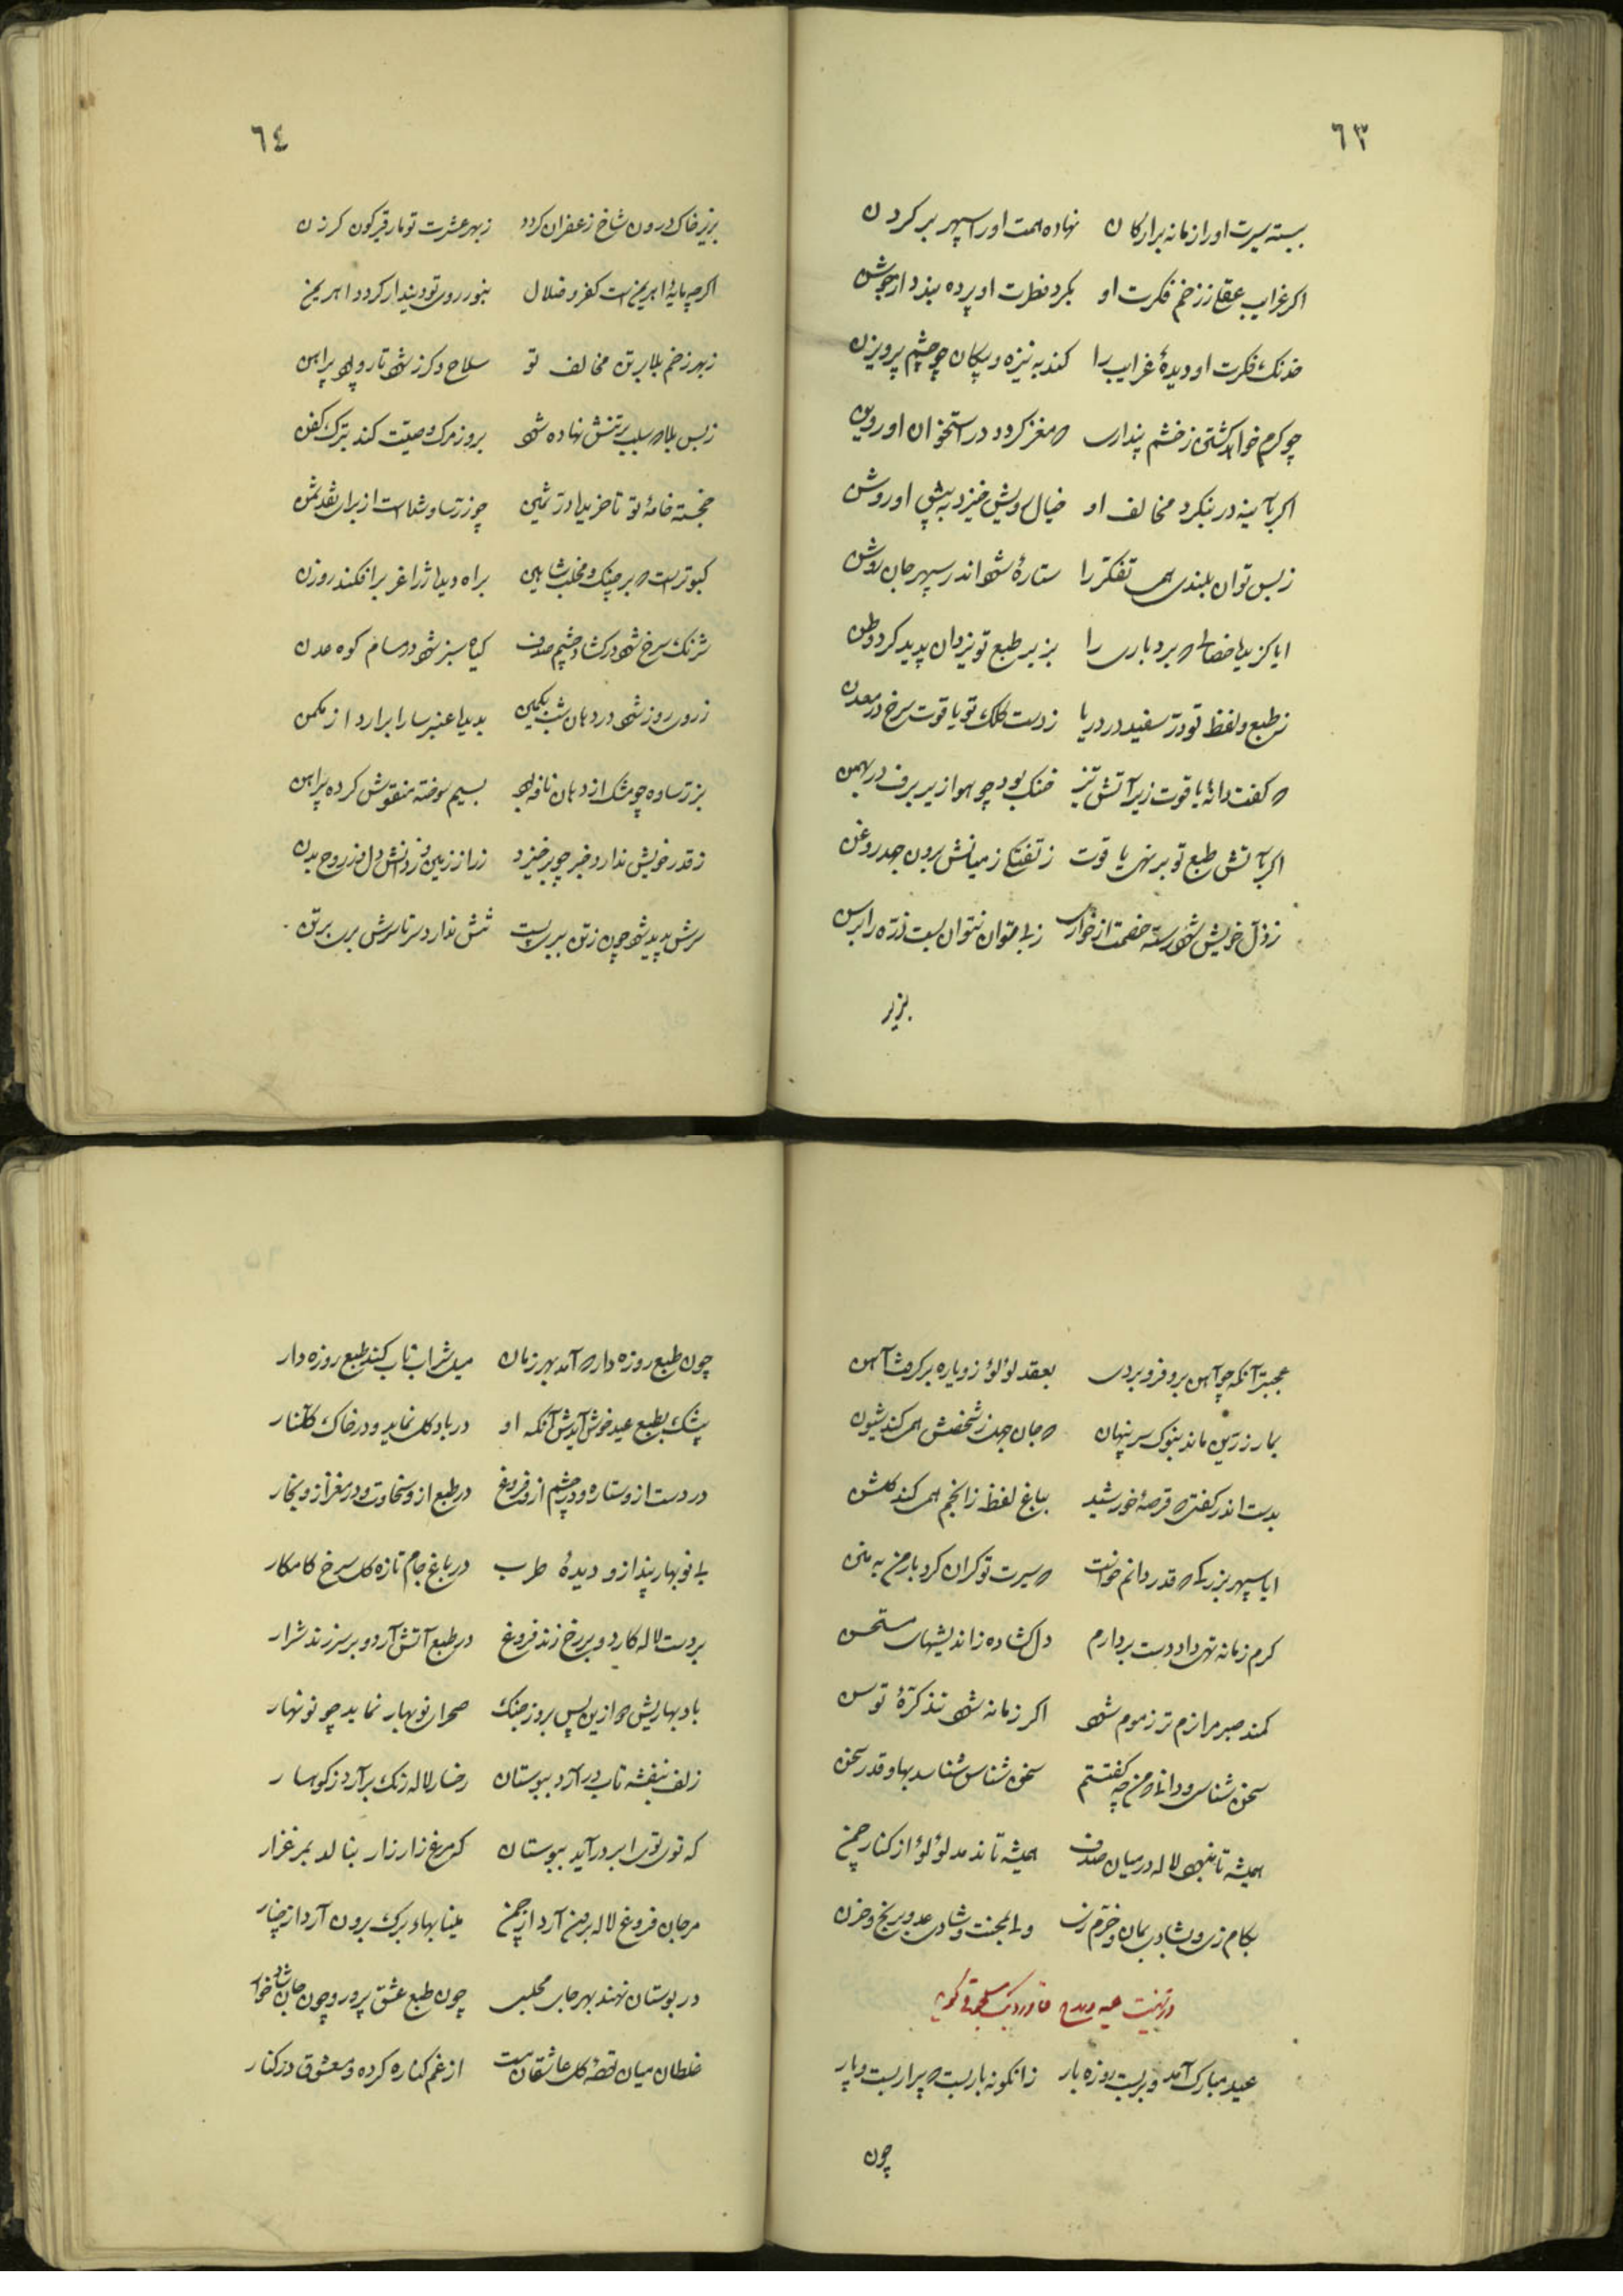 ٦٣
ببسته سیرت او را زمانه بر ارکان نهاده همت او را سپهر بر کردن
اکر غرایب عقلی ز زخم فکرت او بکرد فطرت او پرده بندد از جوشن
خدنک فکرت او دیدهٔ غرایب را کند به نیزه و پیکان چو چشم پرویزن
چو کرم خواهد کشتن ز خشم پنداری که مغز کردد در استخوان او روین
اکر بآینه در بنکرد مخالف او خیال رویش خیزد به پیش او روشن
ز بس توان بلندی همی تفکر را ستاره شود اندر سپهر جان روشن
ایا کزیده خصالی که بردباری را بزیر طبع تو یزدان پدید کرد وطن
ز طبع و لفظ تو درّ سفید در دریا ز دست کلک تو یاقوت سرخ در معدن
که کفت دانهٔ یاقوت زیر آتش تیز خنک بود چو هوا زیر برف در بهمن
اکر بآتش طبع تو بر نهی یاقوت ز تفتکی ز میانش برون جهد روغن
ز ذلّ خویش شود رسته خصمت از خواری بلی بتوان نتوان بست ذرّه را برسن
بزیر
٦٤
بزیر خاک درون شاخ زعفران کردد ز بهر عشرت تو مار قیرکون کرزن
اکرچه مایهٔ اهریمن است کفر و ضلال بنور روی تو دیندار کردد اهریمن
ز بهر زخم بلا بر تن مخالف تو سلاح و کرز شود تار و پود پیراهن
ز بس بلا که سلب بر تنش نهاده شود بروز مرک وصیّت کند بترک کفن
خجسته خامهٔ تو تا خرید درّ ثمین چو زرّ ساو شده است از برای نقد ثمن
کبوتر است که بر چنک و مخلب شاهین براه دیده ز زاغ بر افکند روزن
شرنک سرخ شود در کشاده چشم صدف کیاه سبز شود در مسام کوه عدن
ز روی روز شود در دهان شب بکمین پدید عنبر سارا برآرد از مکمن
بزرّ ساده چو مشک از دهان نافه بود بسیم سوخته منقوش کرده پیراهن
ز قدر خویش ندارد خبر چو برخیزد زر از زمین و ز دانش دل و ز روح بدن
سرش پدید شود چون ز تن ببری سر تنش ندارد سر تا سرش بری بر تن
عجبتر آنکه چو آهن برو فرو بردی بعقد لؤلؤ زو پاره برکرفت آهن
بمار زرّین ماند بنوک سر پنهان که جان جهد ز شخصش همی کند شیون
بدست اندر کفتی که قرصهٔ خورشید بباغ لفظ ز انجم همی کند کلشن
ایا سپهر بزرکی که قدر دانم خواست که سیرت تو کران کرد بار من به منن
کرم زمانه تهی داد دست بردارم دل کشاده ز اندیشهای مستحسن
کمند صبر مرا نرم تر ز موم شود اکر زمانه شود تند کرّهٔ توسن
سخن شناسی و دانی که من چه کفتستم سخن شناس شناسد بها و قدر سخن
همیشه تا بنهد لاله در میان صدف همیشه تا ندمد لؤلؤ از کنار چمن
بکام زی و بشادی بمان و خرّم زی ولی بجنت و شادی عدو برنج و حزن
در تهنیت عید و مدح قاورد بک سلجوقی کوید
عید مبارک آمد و بربست روزه بار زانکونه بار بست که پیرار بست و پار
چون
چون طبع روزه دار که آمد بهر زمان میل شراب ناب کند طبع روزه دار
بیشک بطبع عید خوش آیدش آنکه او در باد کل نماید و در خاک کلنار
در دست ازو ستاره و در چشم ازو فروغ در طبع ازو سخاوت و در مغز ازو بخار
بی نوبهار بیند ازو دیدهٔ طرب در باغ جام تازه کل سرخ کامکار
بر دست لاله کارد و بر رخ زند فروغ در طبع آتش آرد و بر سر زند شرار
باد بهاریش که ازین پس بروز جنک صحرای نوبهار نماید چو نوبهار
زلف بنفشه تاب درآرد ببوستان رخسار لاله رنک برآرد ز کوهسار
که توی توی ابر درآید ببوستان که مرغ زار زار بنالد بمرغزار
مرجان فروغ لاله برون آرد از چمن مینا بهاد برک برون آرد از چنار
در بوستان نهند بهر جای مجلسی چون طبع عشق پرور و چون جان شادخوار
غلطان میان لقطهٔ کل عاشقان مست از غم کناره کرده و معشوق در کنار